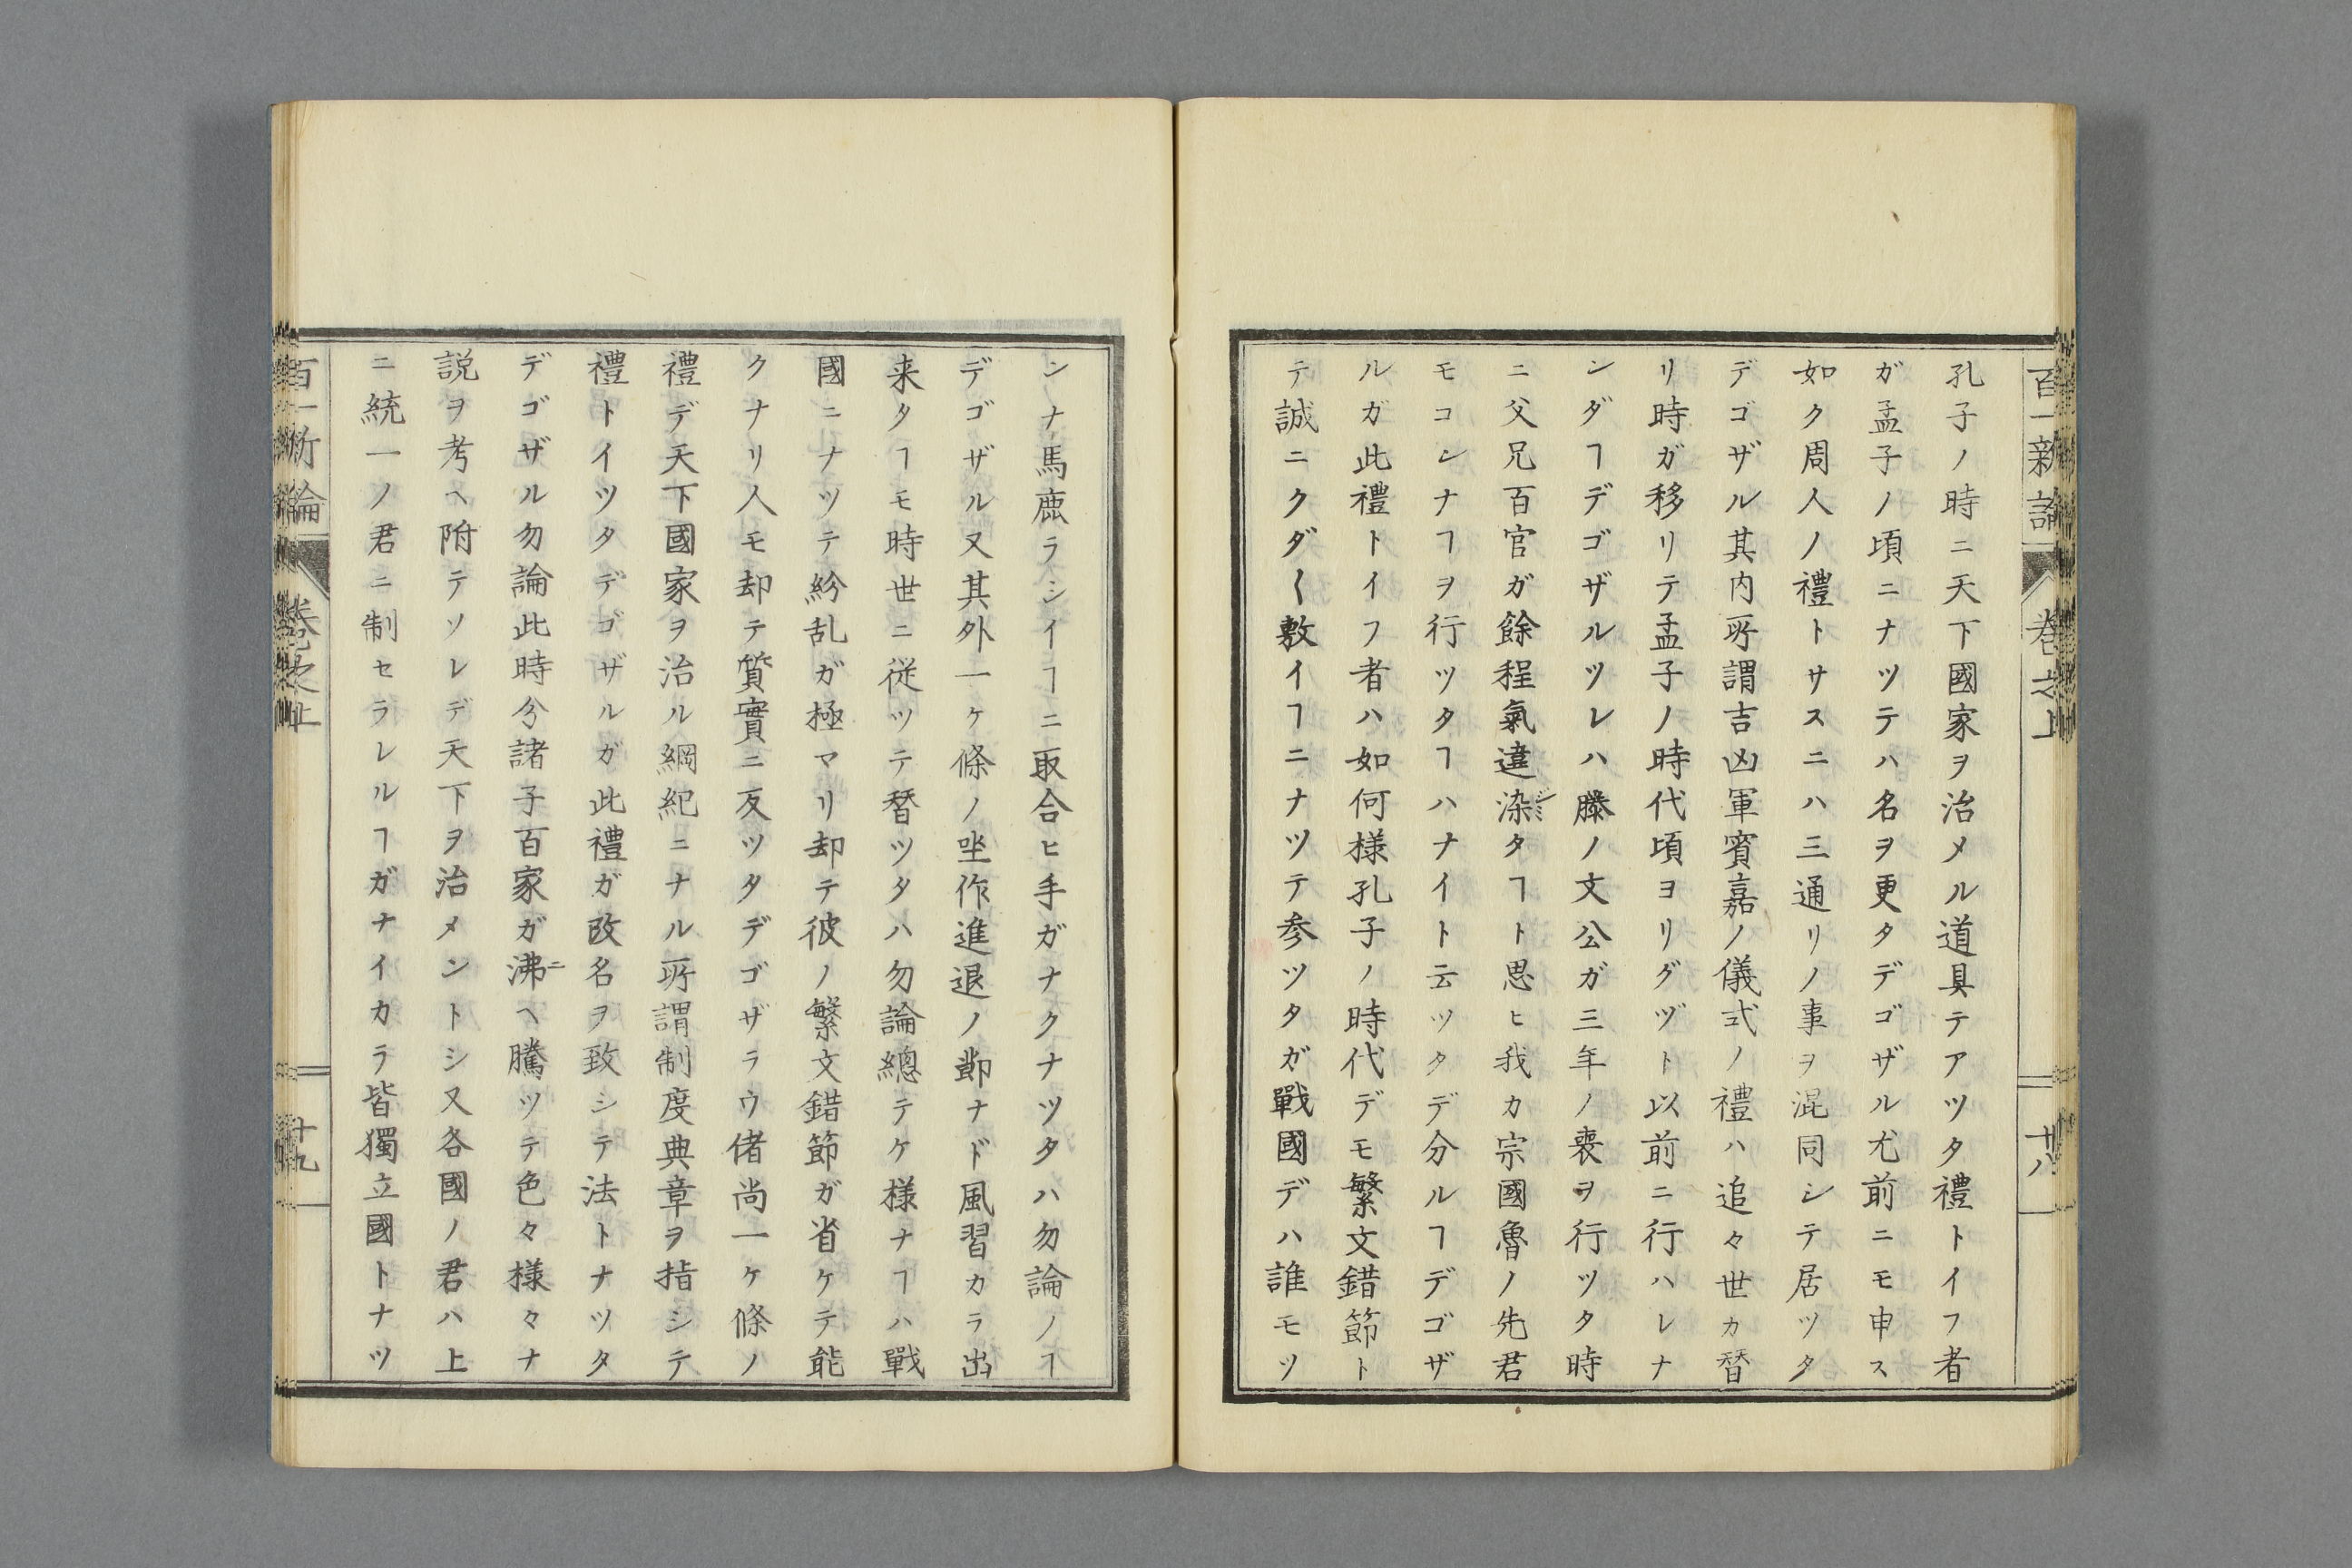 百一新論 卷之上 十八
孔子ノ時ニ天下國家ヲ治メル道具テアツタ禮トイフ者
ガ孟子ノ頃ニナツテハ名ヲ更タデゴザル尤前ニモ申ス
如ク周人ノ禮トサスニハ三通リノ事ヲ混同シテ居ツタ
デゴザル其内所謂吉凶軍賓嘉ノ儀式ノ禮ハ追々世カ替
リ時ガ移リテ孟子ノ時代頃ヨリグヅト以前ニ行ハレナ
ンダヿデゴザルツレハ滕ノ文公ガ三年ノ喪ヲ行ツタ時
ニ父兄百官ガ餘程氣違染ジミタヿト思ヒ我カ宗國魯ノ先君
モコンナヿヲ行ツタヿハナイト云ツタデ分ルヿデゴザ
ルガ此禮トイフ者ハ如何様孔子ノ時代デモ繁文錯節ト
テ誠ニクダ〱敷イヿニナツテ参ツタガ戰國デハ誰モソ
ンナ馬鹿ラシイヿニ取合ヒ手ガナクナツタハ勿論ノヿ
デゴザル又其外一ケ條ノ坐作進退ノ節ナド風習カラ出
来タヿモ時世ニ従ツテ替ツタハ勿論總テケ様ナヿハ戰
國ニナツテ紛乱ガ極マリ却テ彼ノ繁文錯節ガ省ケテ能
クナリ人モ却テ質實ニ反ツタデゴザラウ偖尚一ケ條ノ
禮デ天下國家ヲ治ル綱紀ニナル所謂制度典章ヲ指シテ
禮トイツタデゴザルガ此禮ガ改名ヲ致シテ法トナツタ
デゴザル勿論此時分諸子百家ガ沸ニヘ騰ツテ色々様々ナ
説ヲ考ヘ附テソレデ天下ヲ治メントシ又各國ノ君ハ上
ニ統一ノ君ニ制セラレルヿガナイカラ皆獨立國トナツ
百一新論 卷之上 十九